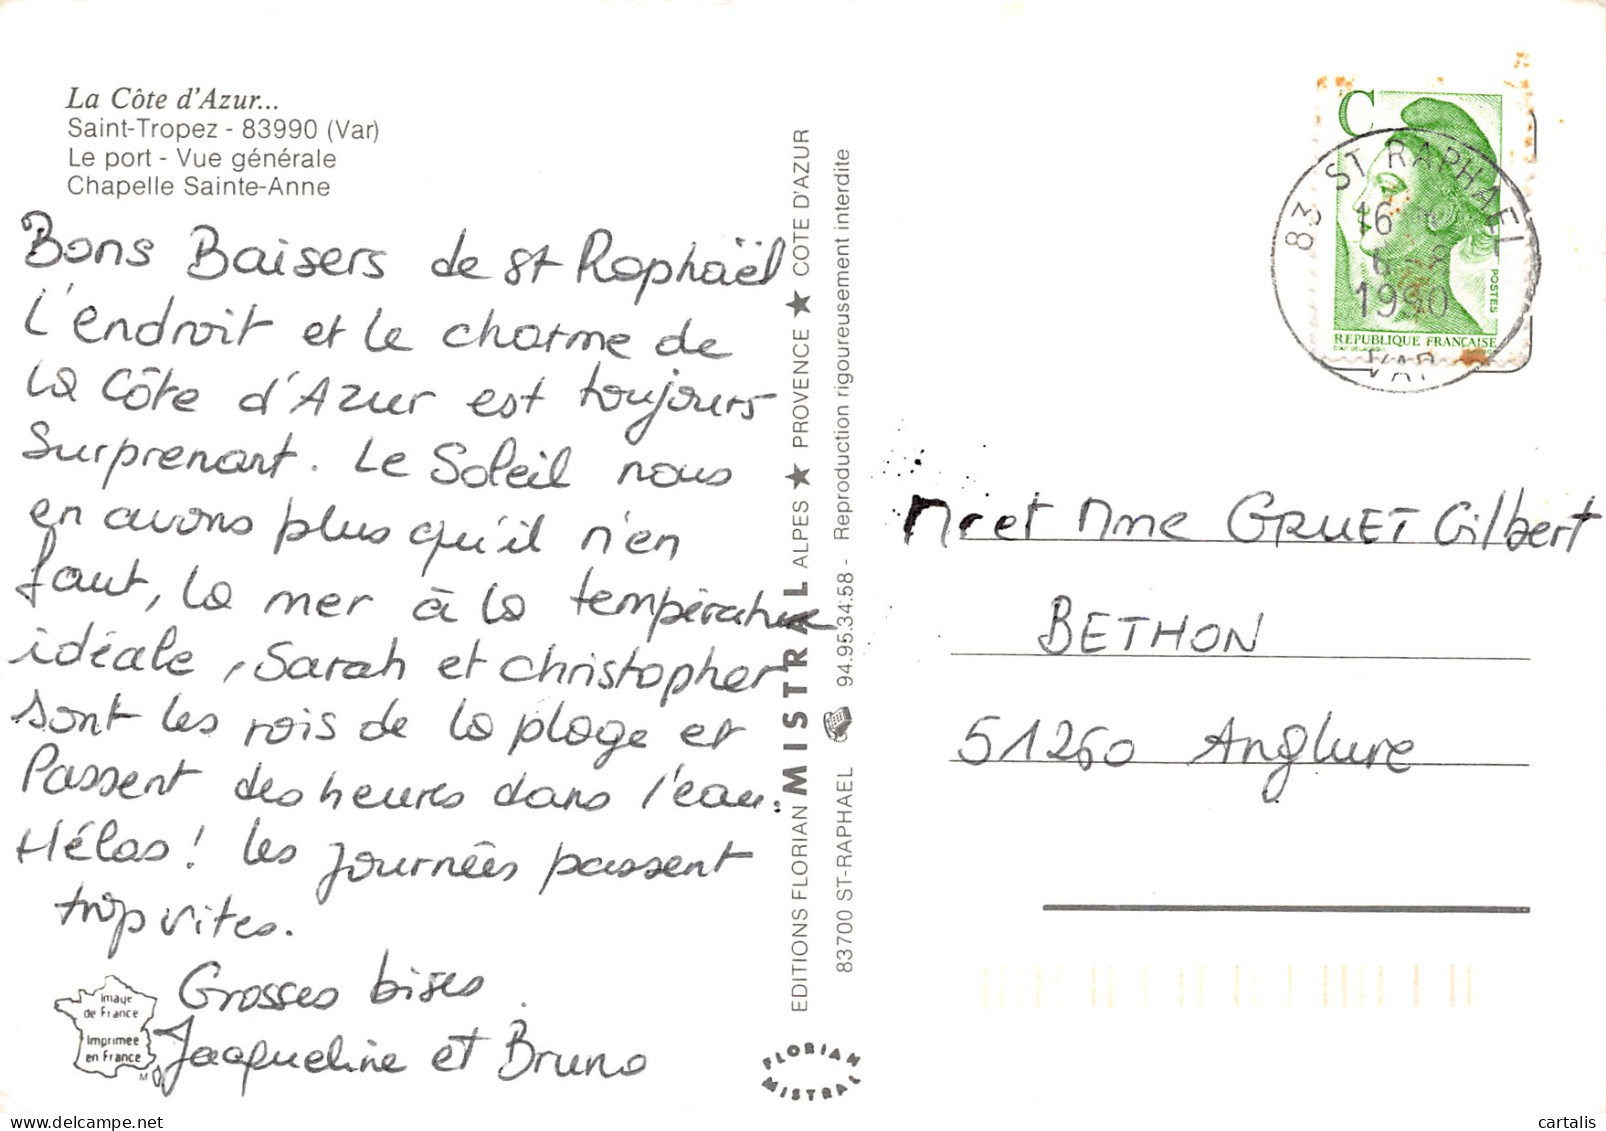 La Côte d'Azur...
Saint-Tropez - 83990 (Var)
Le port - Vue générale
Chapelle Sainte-Anne
Bons Baisers de St Raphaël
L'endroit et le charme de
la Côte d'Azur est toujours
Surprenant. Le Soleil nous
en avons plus qu'il n'en
faut, la mer à la température
idéale, Sarah et Christopher
sont les rois de la plage et
Passent des heures dans l'eau.
Hélas! les journées passent
trop vites.
Grosses bises.
Jacqueline et Bruno
Image
de France
Imprimée
en France
EDITIONS FLORIAN MISTRAL ALPES ★ PROVENCE ★ COTE D'AZUR
83700 ST-RAPHAEL 94.95.34.58 - Reproduction rigoureusement interdite
FLORIAN
MISTRAL
C
POSTES
REPUBLIQUE FRANÇAISE
83 ST RAPHAEL
16
6 - 8
1990
VAR
Mr et Mme GRUET Gilbert
BETHON
51260 Anglure
cartalis